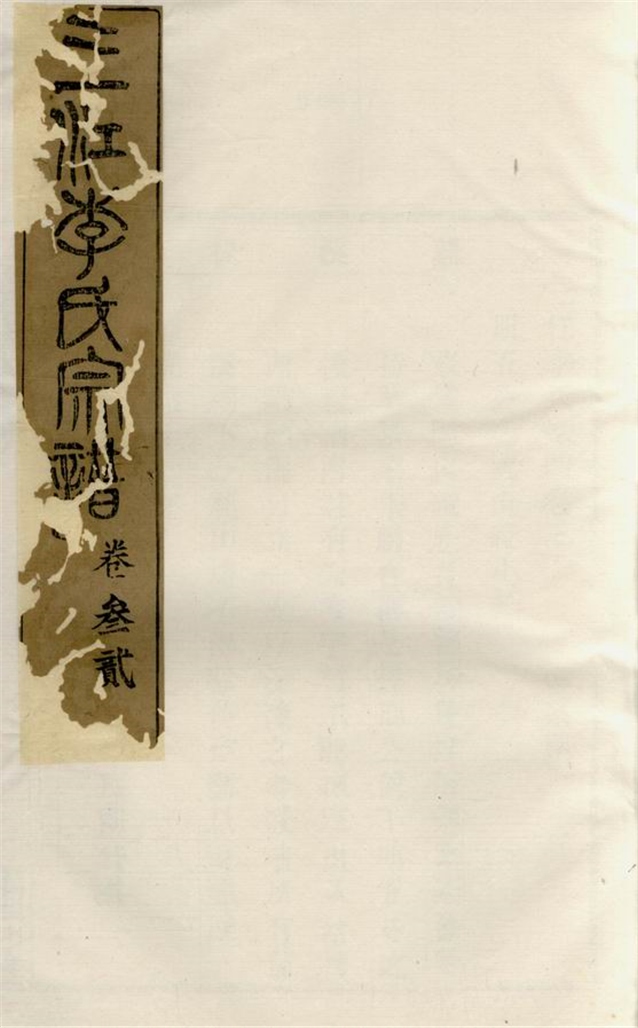 三江李氏宗譜
卷叁貳